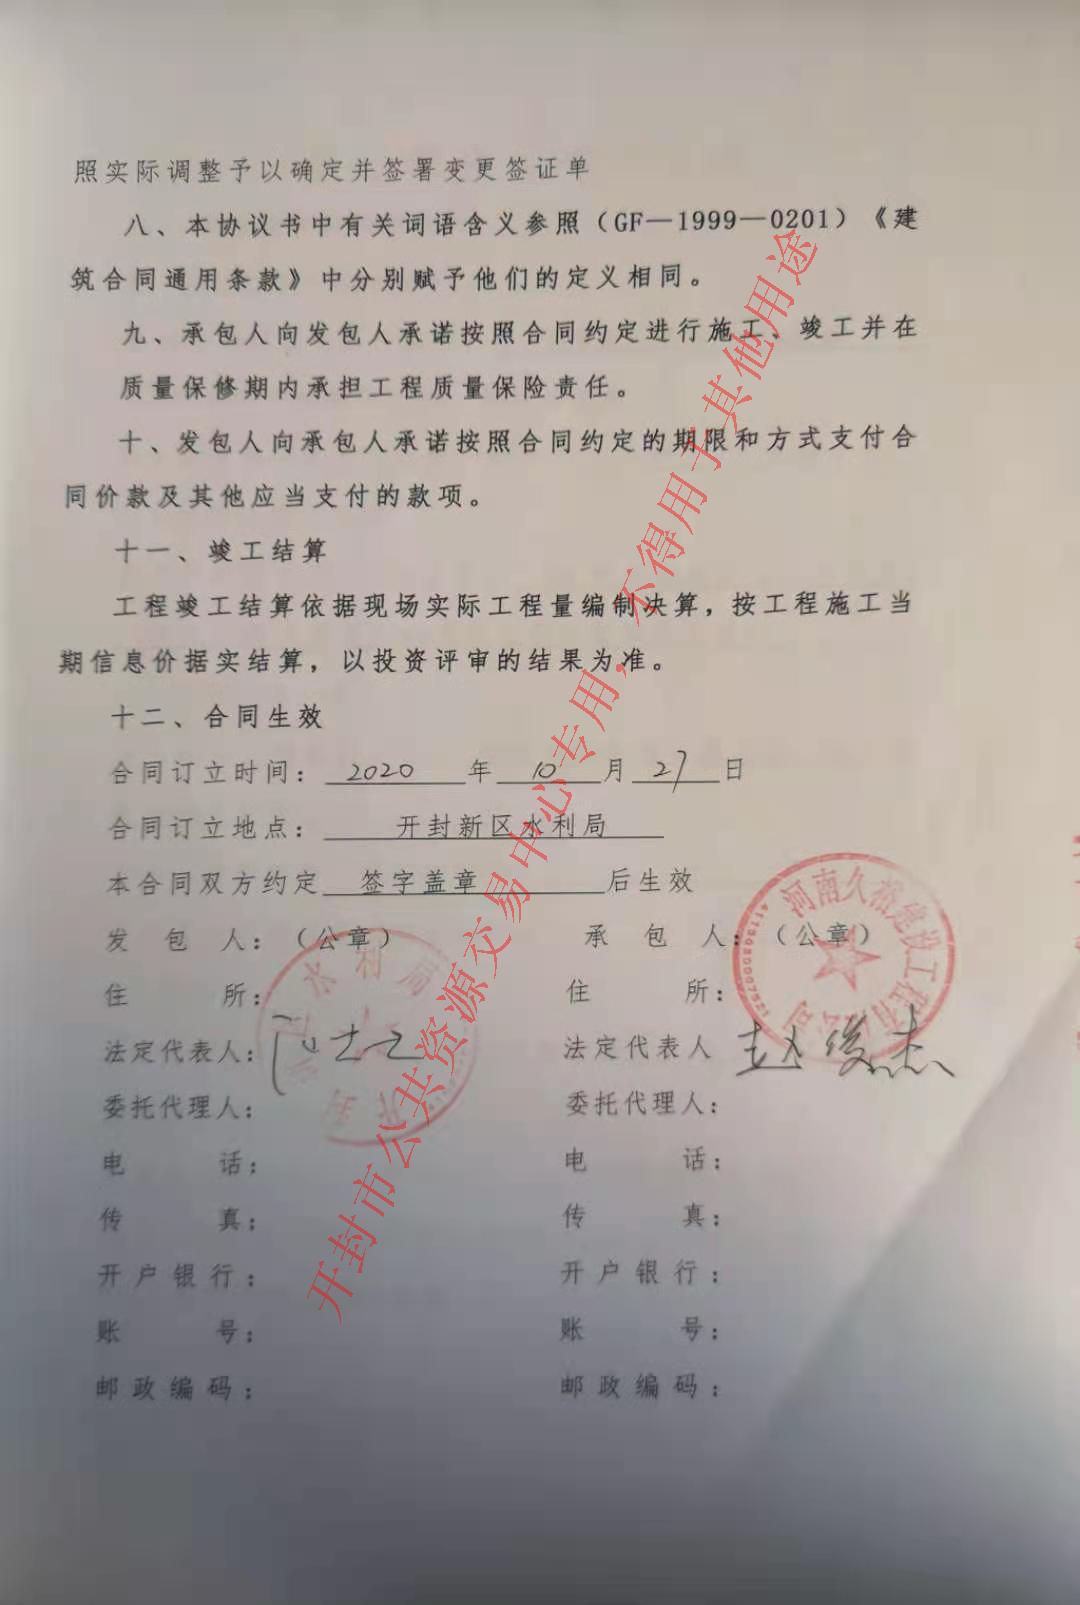 照实际调整予以确定并签署变更签证单
八、本协议书中有关词语含义参照（GF—1999—0201）《建
筑合同通用条款》中分别赋予他们的定义相同。
九、承包人向发包人承诺按照合同约定进行施工、竣工并在
质量保修期内承担工程质量保险责任。
十、发包人向承包人承诺按照合同约定的期限和方式支付合
同价款及其他应当支付的款项。
十一、竣工结算
工程竣工结算依据现场实际工程量编制决算，按工程施工当
期信息价据实结算，以投资评审的结果为准。
十二、合同生效
合同订立时间：2020年10月27日
合同订立地点：开封新区水利局
本合同双方约定 签字盖章 后生效
发包人：（公章） 承包人：（公章）
住所： 住所：
法定代表人： 法定代表人 赵俊杰
委托代理人： 委托代理人：
电话： 电话：
传真： 传真：
开户银行： 开户银行：
账号： 账号：
邮政编码： 邮政编码：
水利局
河南久松建设工程有限公司
开封市公共资源交易中心专用，不得用于其他用途